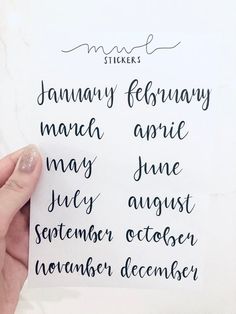 mwl
STICKERS
January february
march april
may June
July august
September october
november december